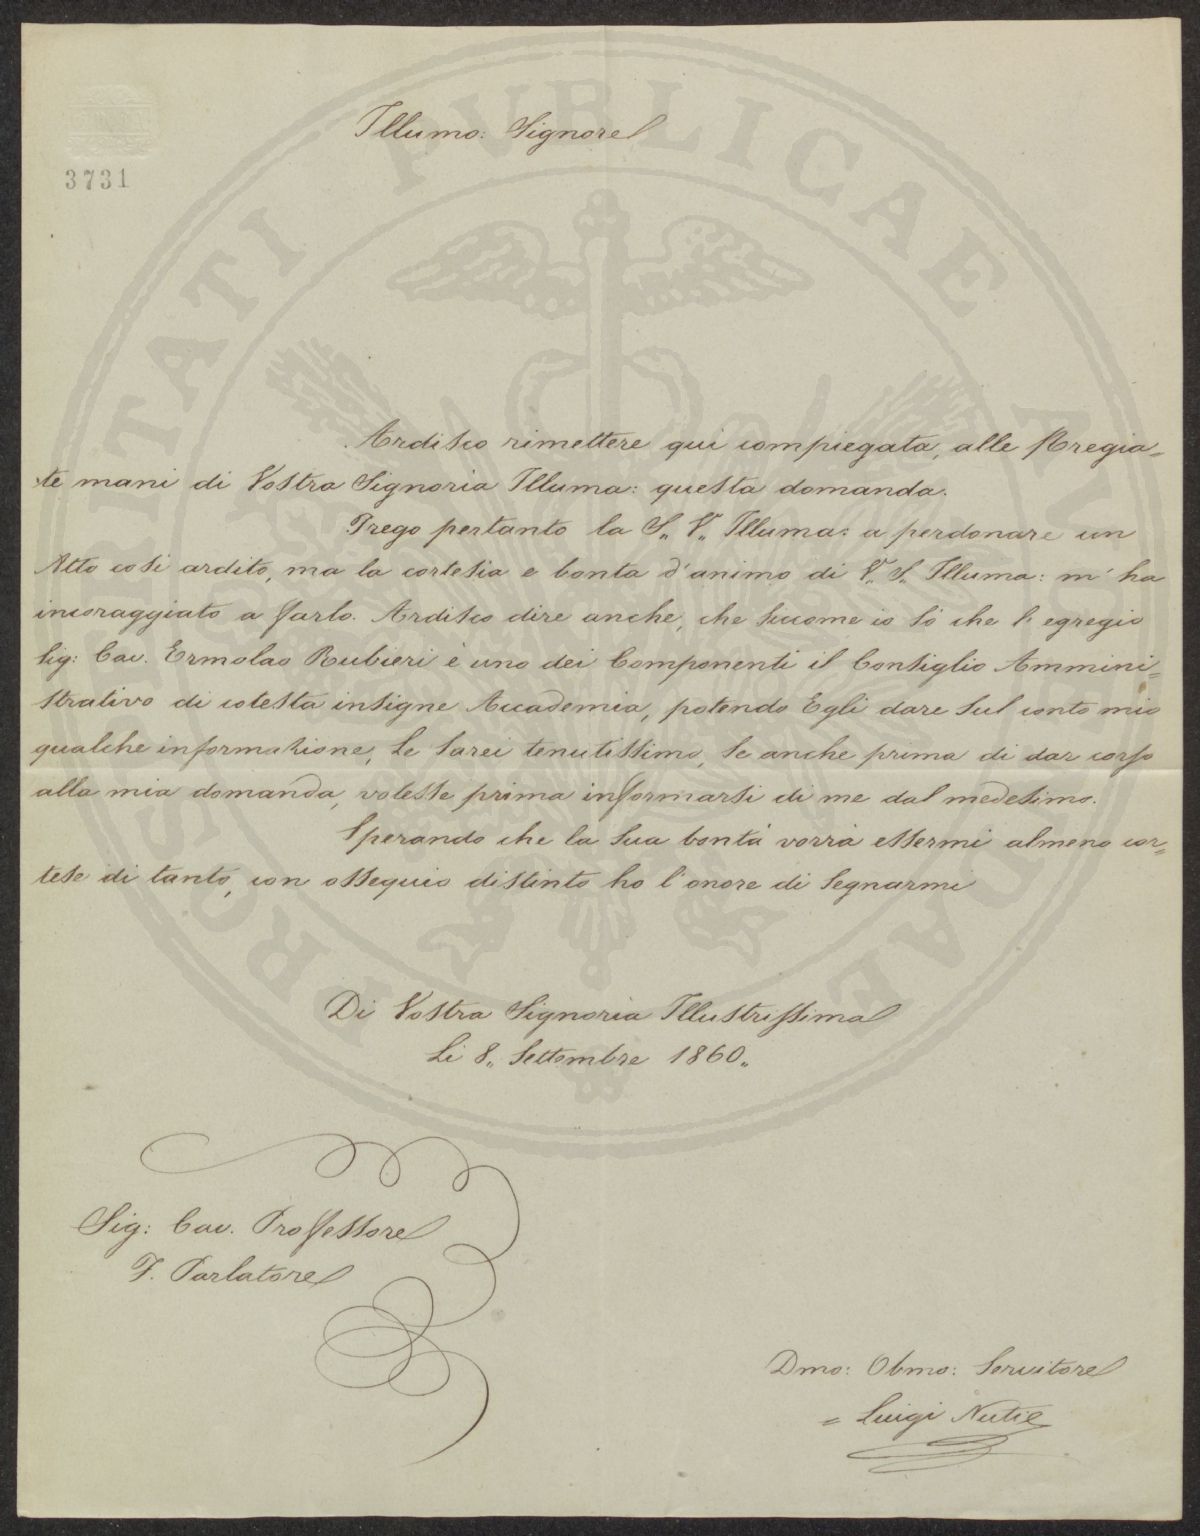 3731
Illumo: Signore
Ardisco rimettere qui compiegata, alle Pregia=
te mani di Vostra Signoria Illuma: questa domanda.
Prego pertanto la S,, V,, Illuma: a perdonare un
Atto così ardito, ma la cortesia e bontà d'animo di V,, S,, Illuma: m'ha
incoraggiato a farlo. Ardisco dire anche, che siccome io sò che l'egregio
Sig: Cav. Ermolao Rubieri è uno dei Componenti il Consiglio Ammini=
strativo di cotesta insigne Accademia, potendo Egli dare sul conto mio
qualche informazione, Le sarei tenutissimo, se anche prima di dar corso
alla mia domanda, volesse prima informarsi di me dal medesimo.
Sperando che la Sua bontà vorrà essermi almeno cor=
tese di tanto, con ossequio distinto ho l'onore di segnarmi
Di Vostra Signoria Illustrissima
Li 8,, Settembre 1860,,
Sig: Cav. Professore
F. Parlatore
Dmo: Obmo: Servitore
= Luigi Nuti =
PROSPERITATI PUBLICAE AUGENDAE